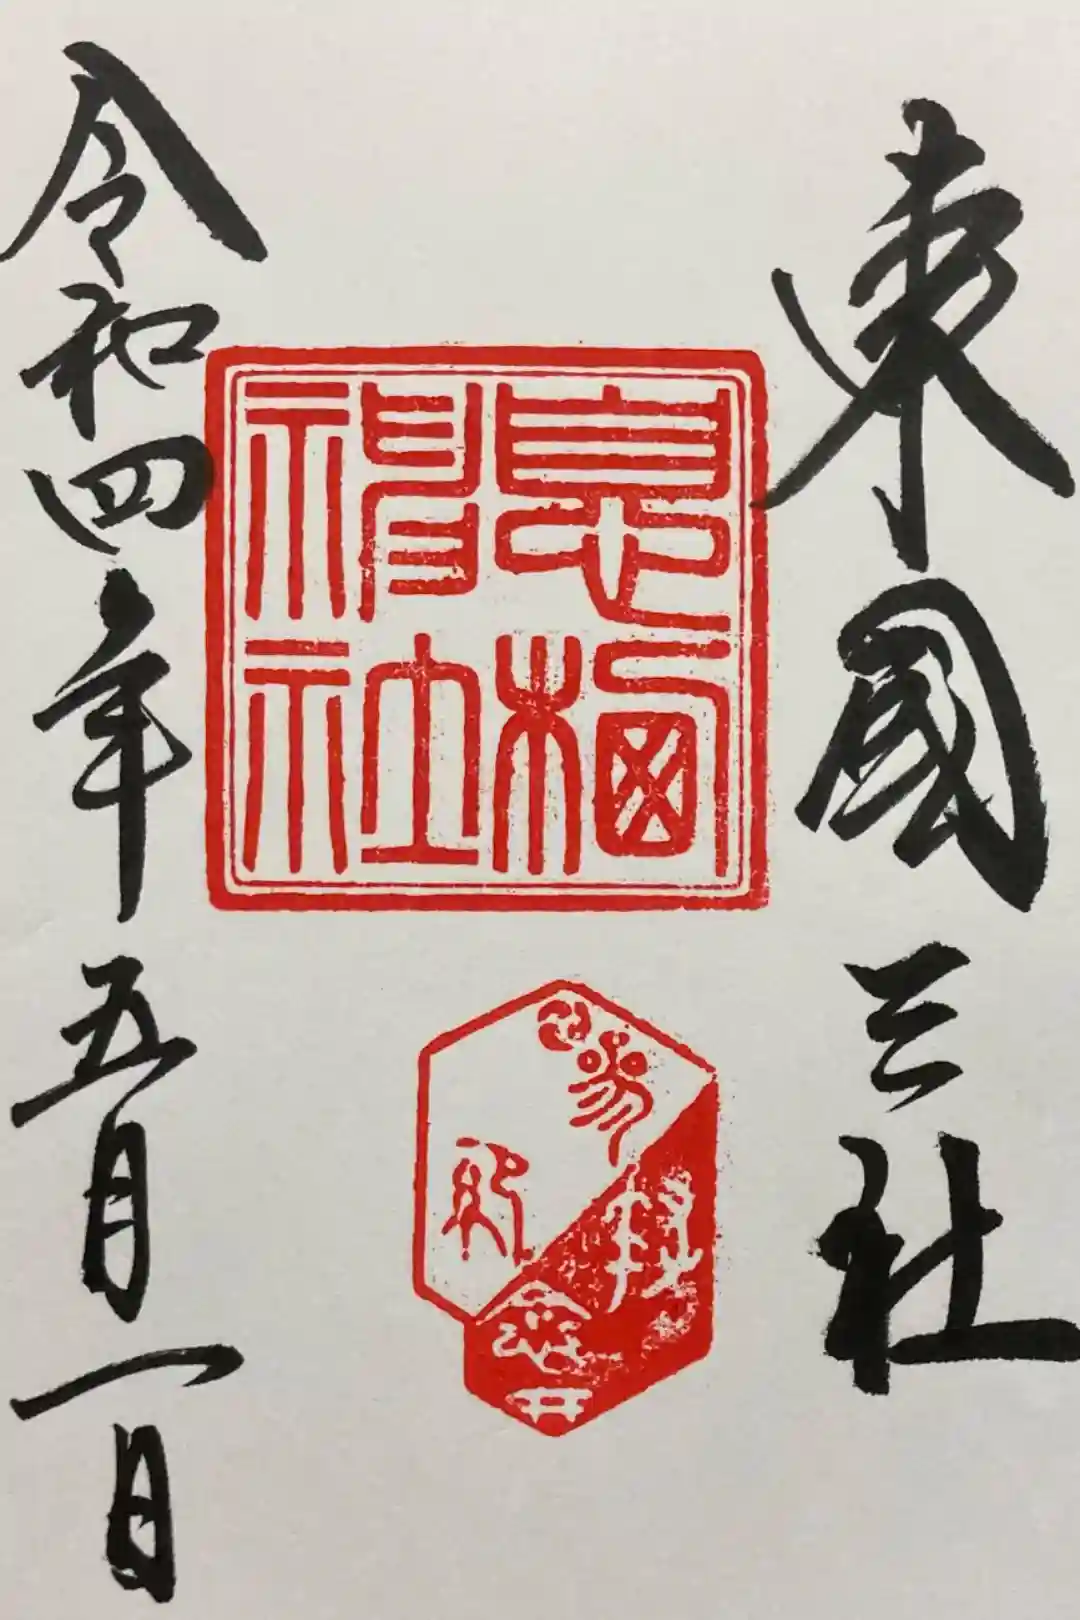 東國三社
息栖
神社
令和四年五月一日